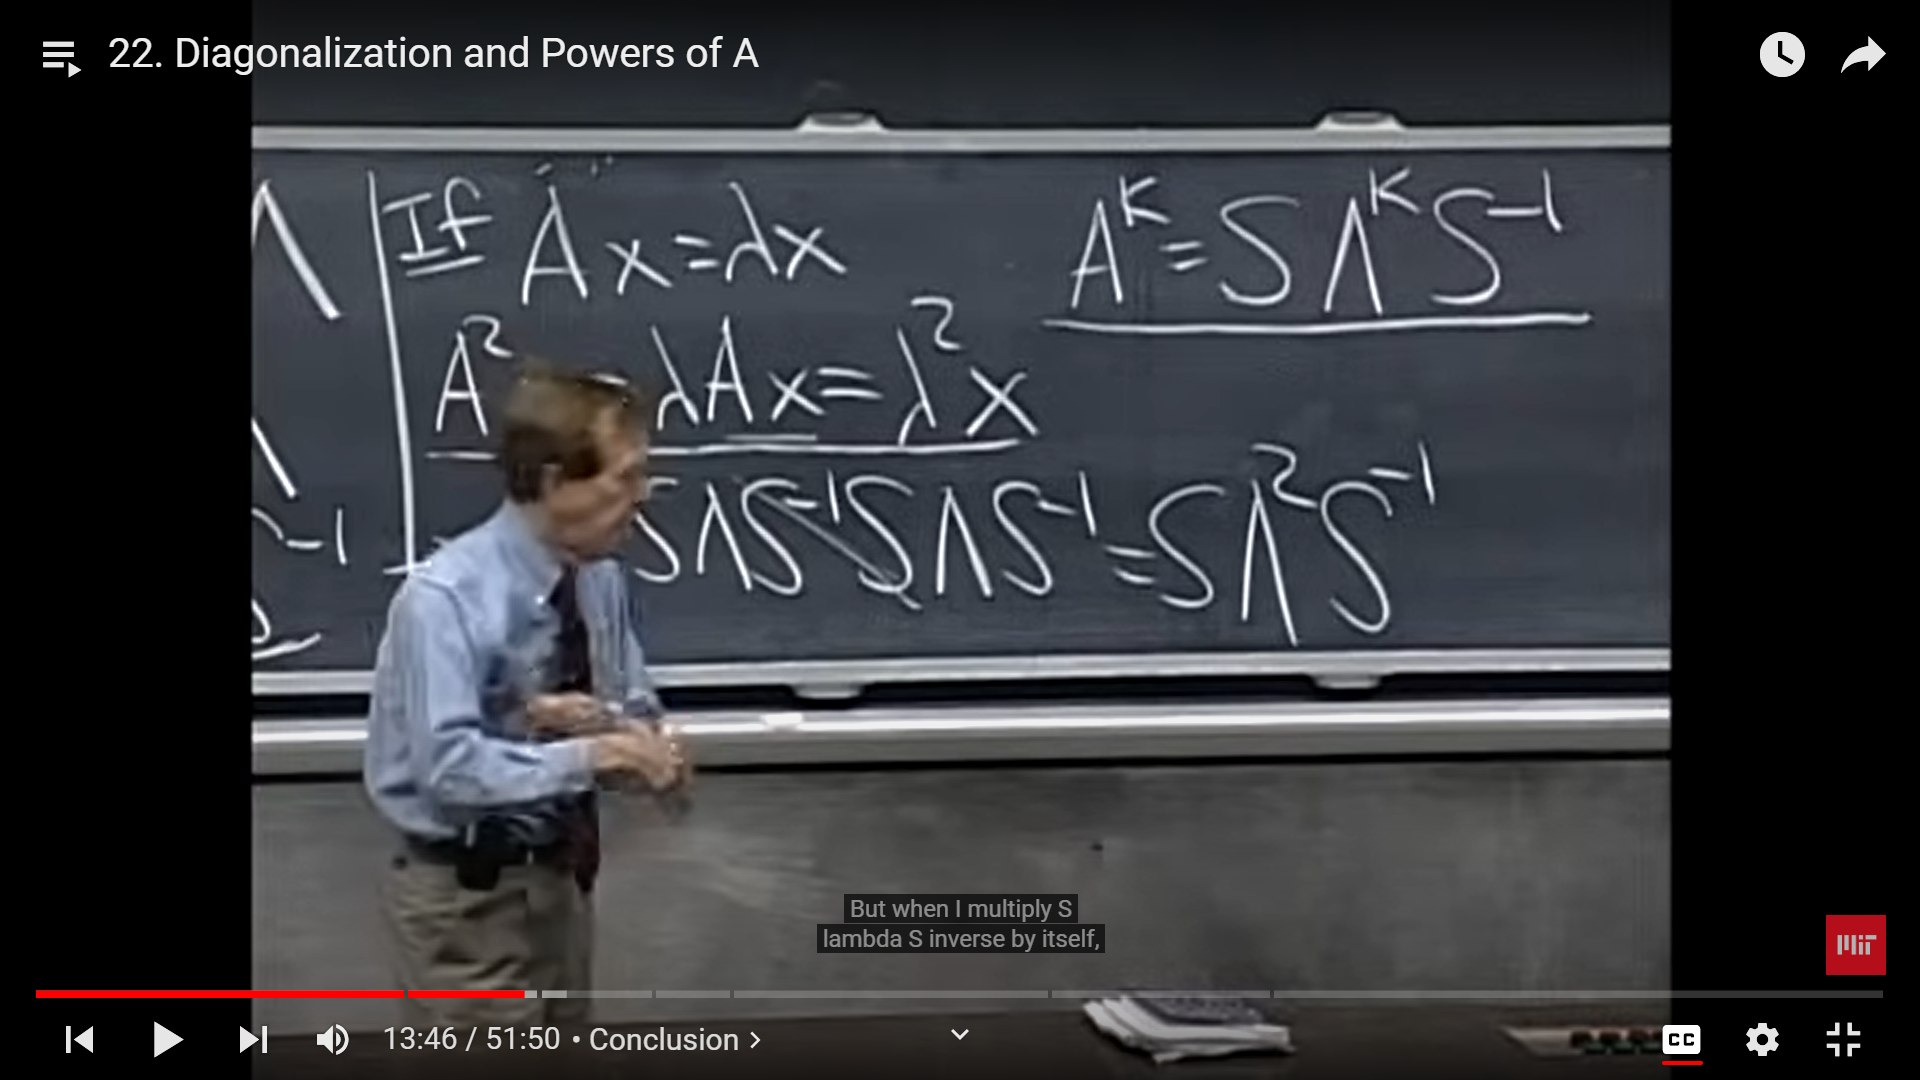 22. Diagonalization and Powers of A
If Ax=λx
A² λAx=λ²x
SΛS⁻¹SΛS⁻¹=SΛ²S⁻¹
Aᴷ=SΛᴷS⁻¹
But when I multiply S
lambda S inverse by itself,
MIT
13:46 / 51:50 • Conclusion
CC